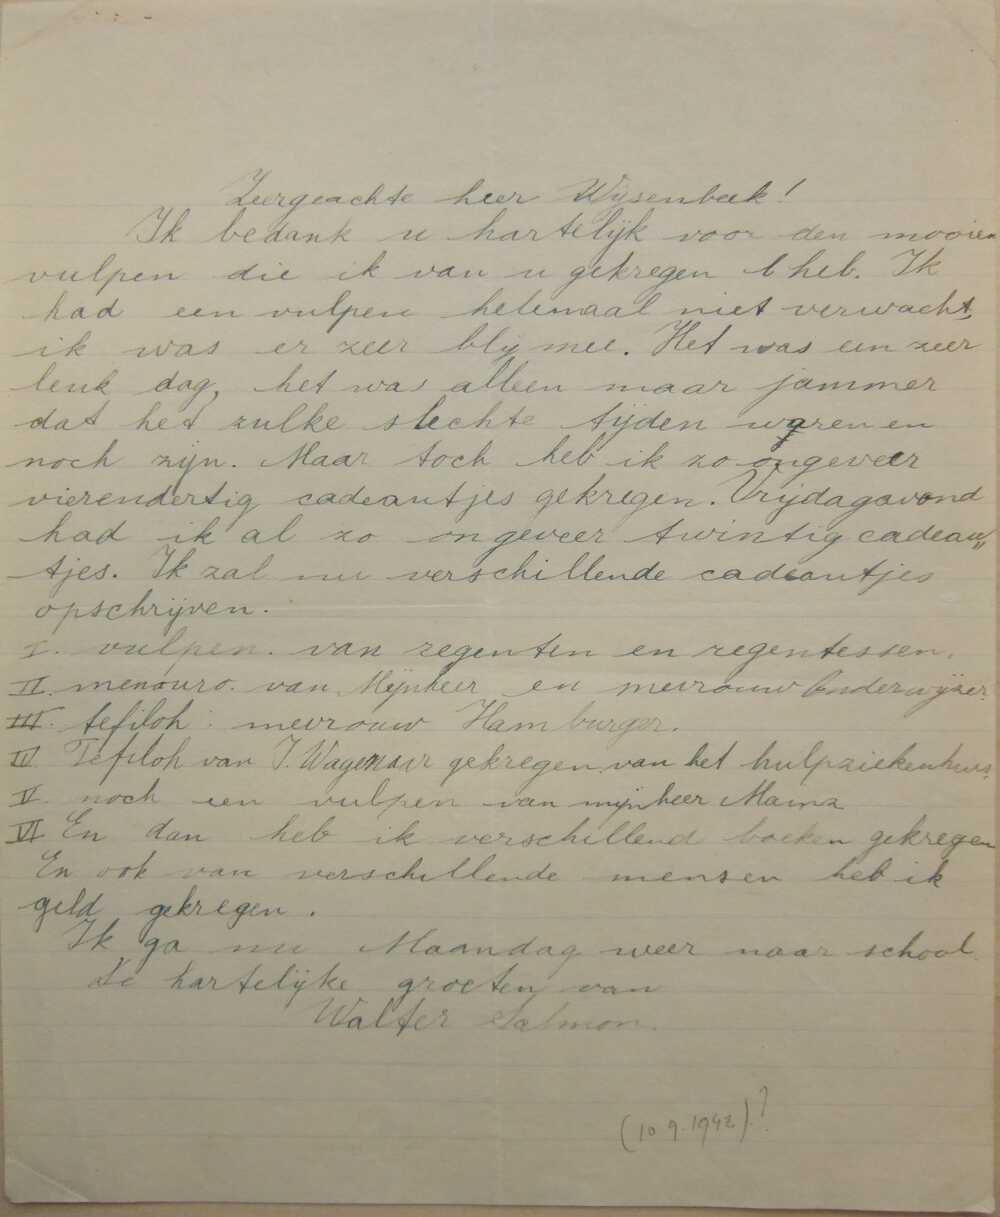 Zeergeachte heer Wijsenbeek!
Ik bedank u hartelijk voor den mooien
vulpen die ik van u gekregen heb. Ik
had een vulpen helemaal niet verwacht,
ik was er zeer blij mee. Het was een zeer
leuk dag, het was alleen maar jammer
dat het zulke slechte tijden waren en
noch zijn. Maar toch heb ik zo ongeveer
vierendertig cadeautjes gekregen. Vrijdagavond
had ik al zo ongeveer twintig cadeau"
tjes. Ik zal nu verschillende cadeautjes
opschrijven.
I. vulpen. van regenten en regentessen.
II. menouro. van Mijnheer en mevrouw Onderwijzer.
III. tefiloh: mevrouw Hamburger.
IV Tefiloh van J. Wagenaar gekregen van het hulpziekenhuis.
V. noch een vulpen van mijnheer Mainz
VI En dan heb ik verschillend boeken gekregen
En ook van verschillende mensen heb ik
geld gekregen.
Ik ga nu Maandag weer naar school.
De hartelijke groeten van
Walter Salmon.
(10.9.1942)?